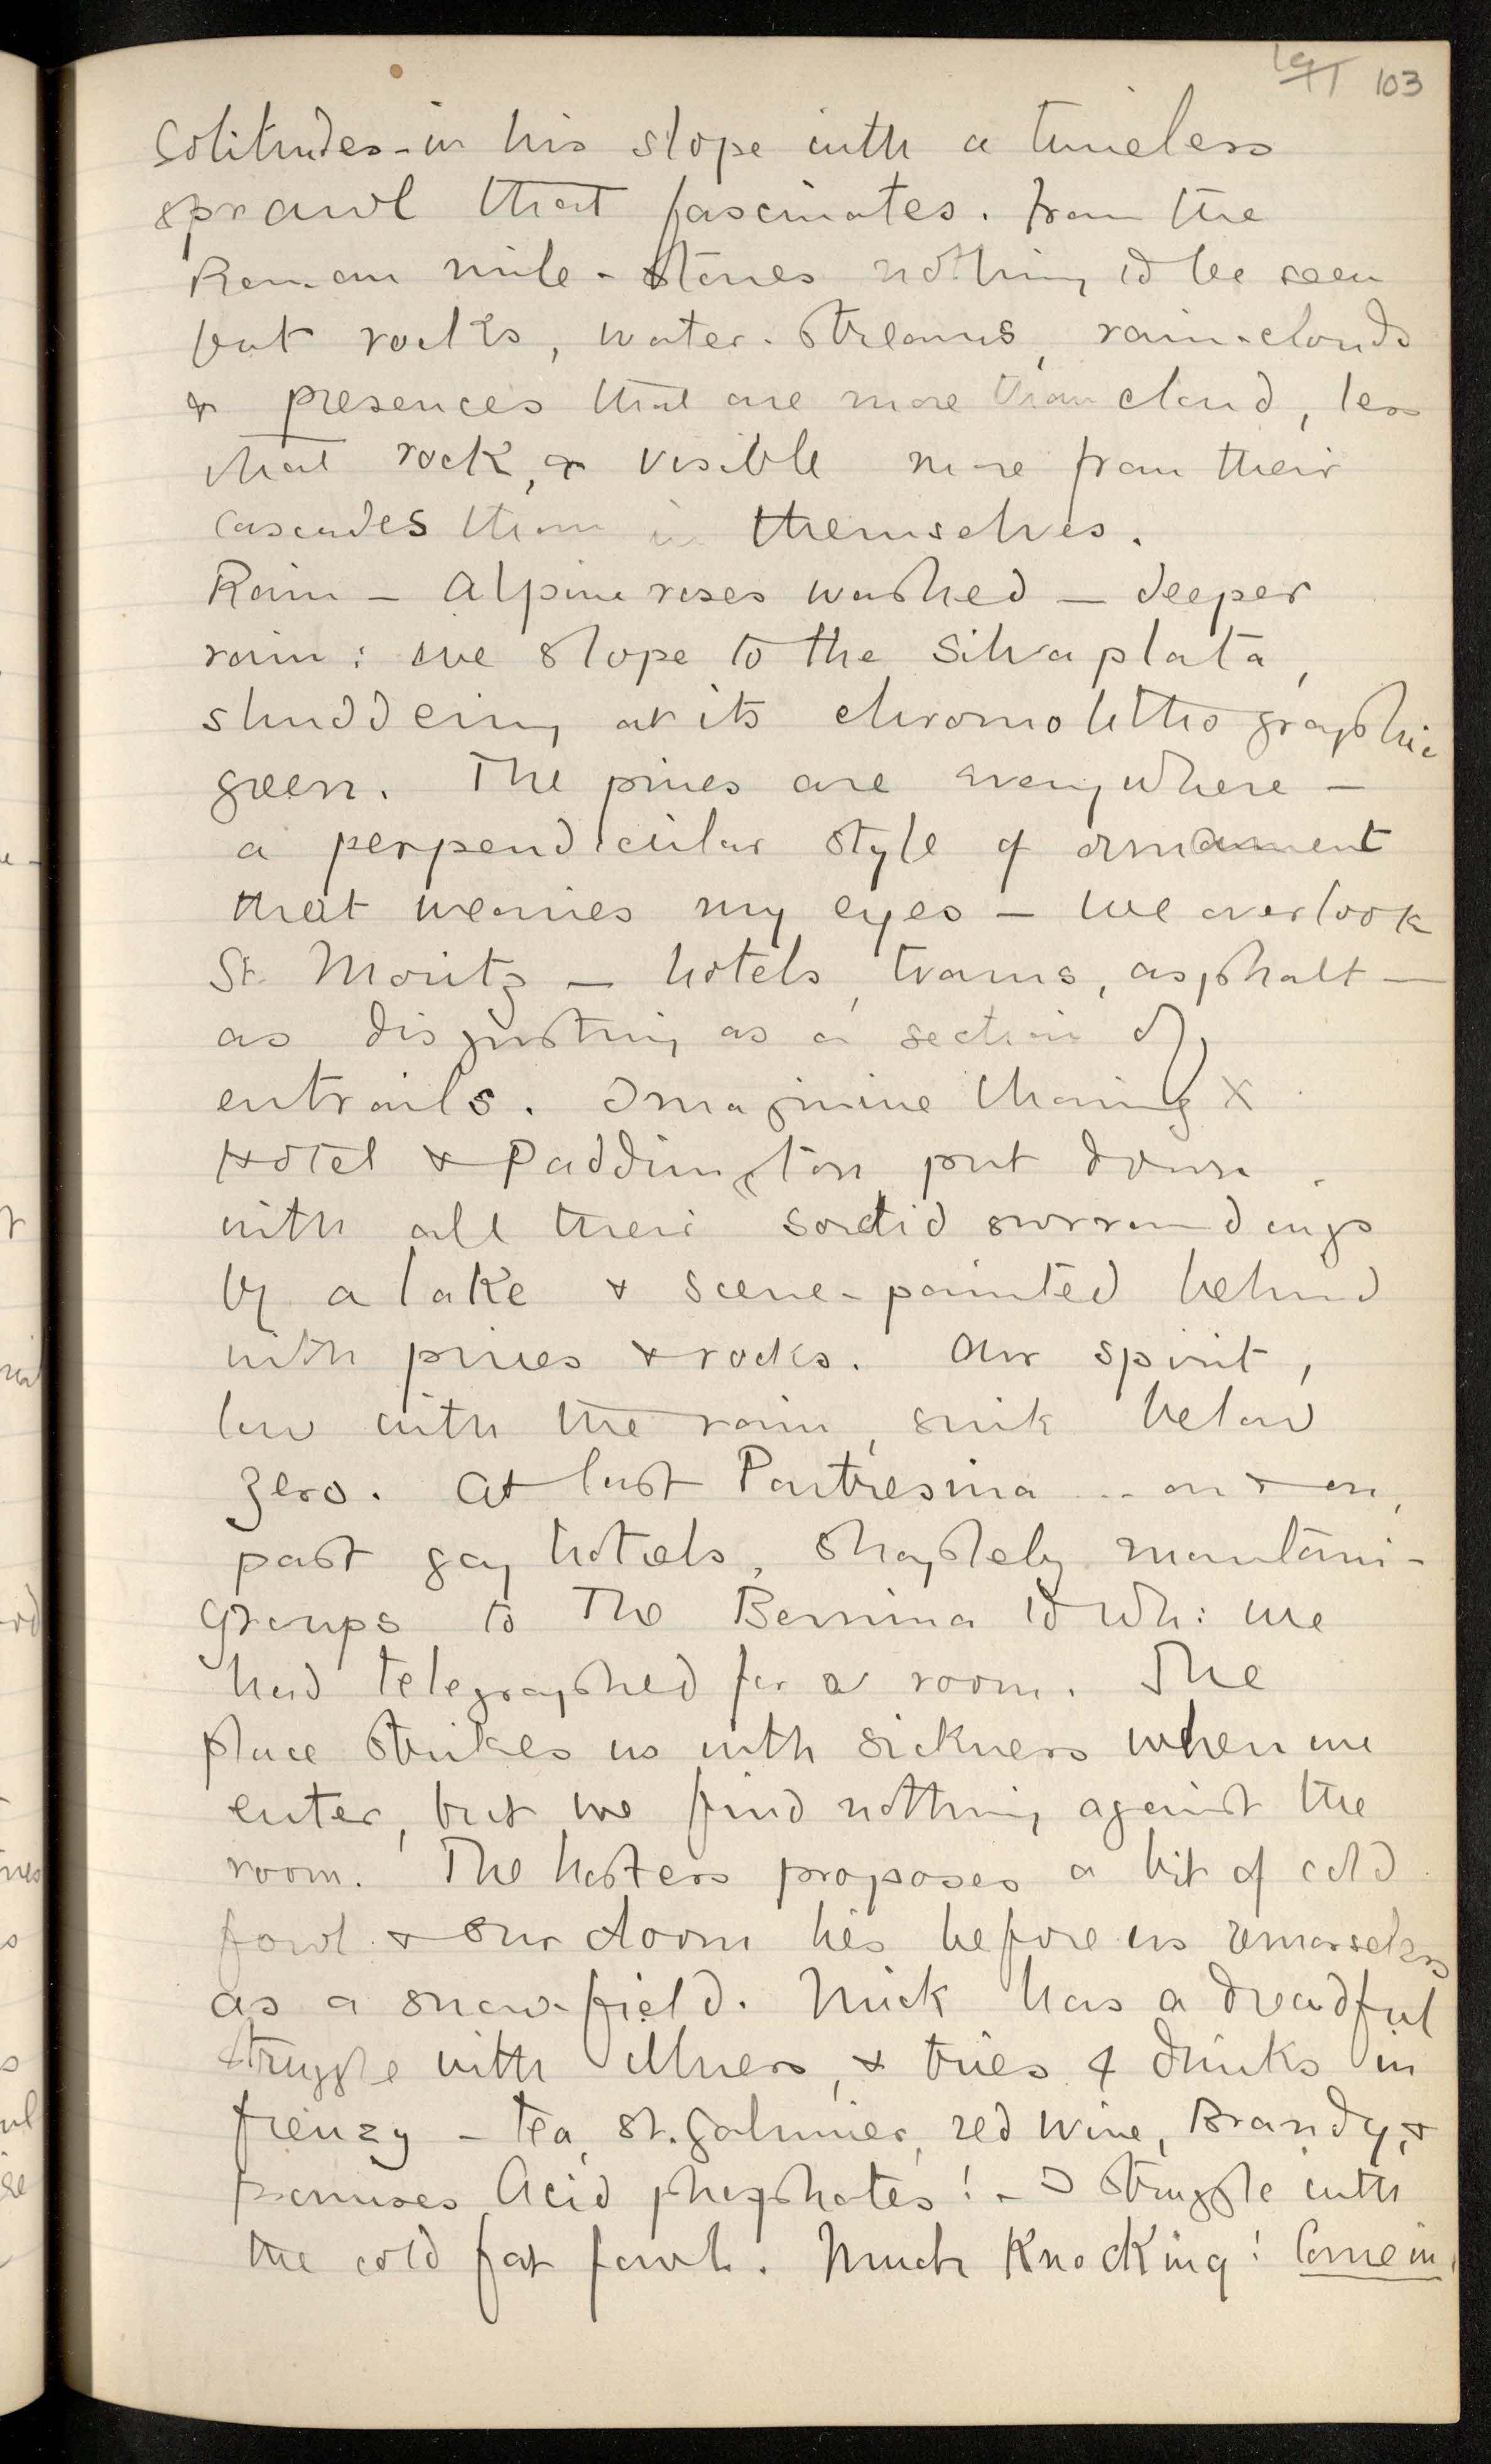 103
solitudes - in his slope with a timeless
sprawl that fascinates. From the
Roman mile-stones nothing to be seen
but rocks, water-streams, rain-clouds
& presences that are more than cloud, less
that rock, & visible more from their
cascades than in themselves.
Rain — Alpine roses washed — deeper
rain: we slope to the Silvaplata,
shuddering at its chromolithographic
green. The pines are everywhere —
a perpendicular style of ornament
that wearies my eyes — We overlook
St. Moritz — hotels, trams, asphalt —
as disgusting as a section of
entrails. Imagine Charing X
Hotel & Paddington put down
with all their sordid surroundings
by a lake & scene-painted behind
with pines & rocks. Our spirit,
low with the rain, sink below
zero. At last Pontresina .. on & on,
past gay hotels, shapely mountain-
groups to The Bernina to wh: we
had telegraphed for a room. The
place strikes us with sickness when we
enter, but we find nothing against the
room. The hostess proposes a bit of cold
fowl & our doom lies before us remorseless
as a snow-field. Mick has a dreadful
struggle with illness, & tries 4 drinks in
frenzy — tea, St. Galmier, red wine, Brandy, &
promises Acid phosphates! - I struggle with
the cold fat fowl. Much Knocking! Come in,